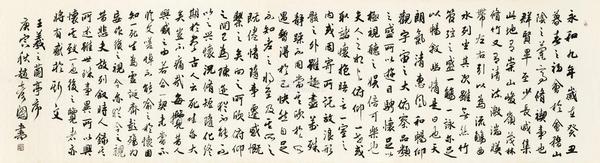 永和九年歲在癸丑
暮春之初會於會稽山
陰之蘭亭脩禊事也
群賢畢至少長咸集
此地有崇山峻嶺茂林
脩竹又有清流激湍映
帶左右引以為流觴曲
水列坐其次雖無絲竹
管弦之盛一觴一詠亦足
以暢敘幽情是日也天
朗氣清惠風和暢仰
觀宇宙之大俯察品類
之盛所以遊目騁懷足以
極視聽之娛信可樂也
夫人之相與俯仰一世或
取諸懷抱悟言一室之
內或因寄所託放浪形
骸之外雖趣舍萬殊
靜躁不同當其欣於所
遇暫得於己快然自足
不知老之將至及其所之
既倦情隨事遷感慨
係之矣向之所欣俯仰
之間已為陳迹猶不能不
以之興懷況脩短隨化終
期於盡古人云死生亦大
矣豈不痛哉每覽昔人
興感之由若合一契未嘗不
臨文嗟悼不能喻之於懷固
知死生為虛誕齊彭殤為
妄作後之視今亦猶今之視昔
悲夫故列敘時人錄其
所述雖世殊事異所以興
懷其致一也後之覽者亦
將有感於斯文
王羲之蘭亭序
庚寅秋趙國書